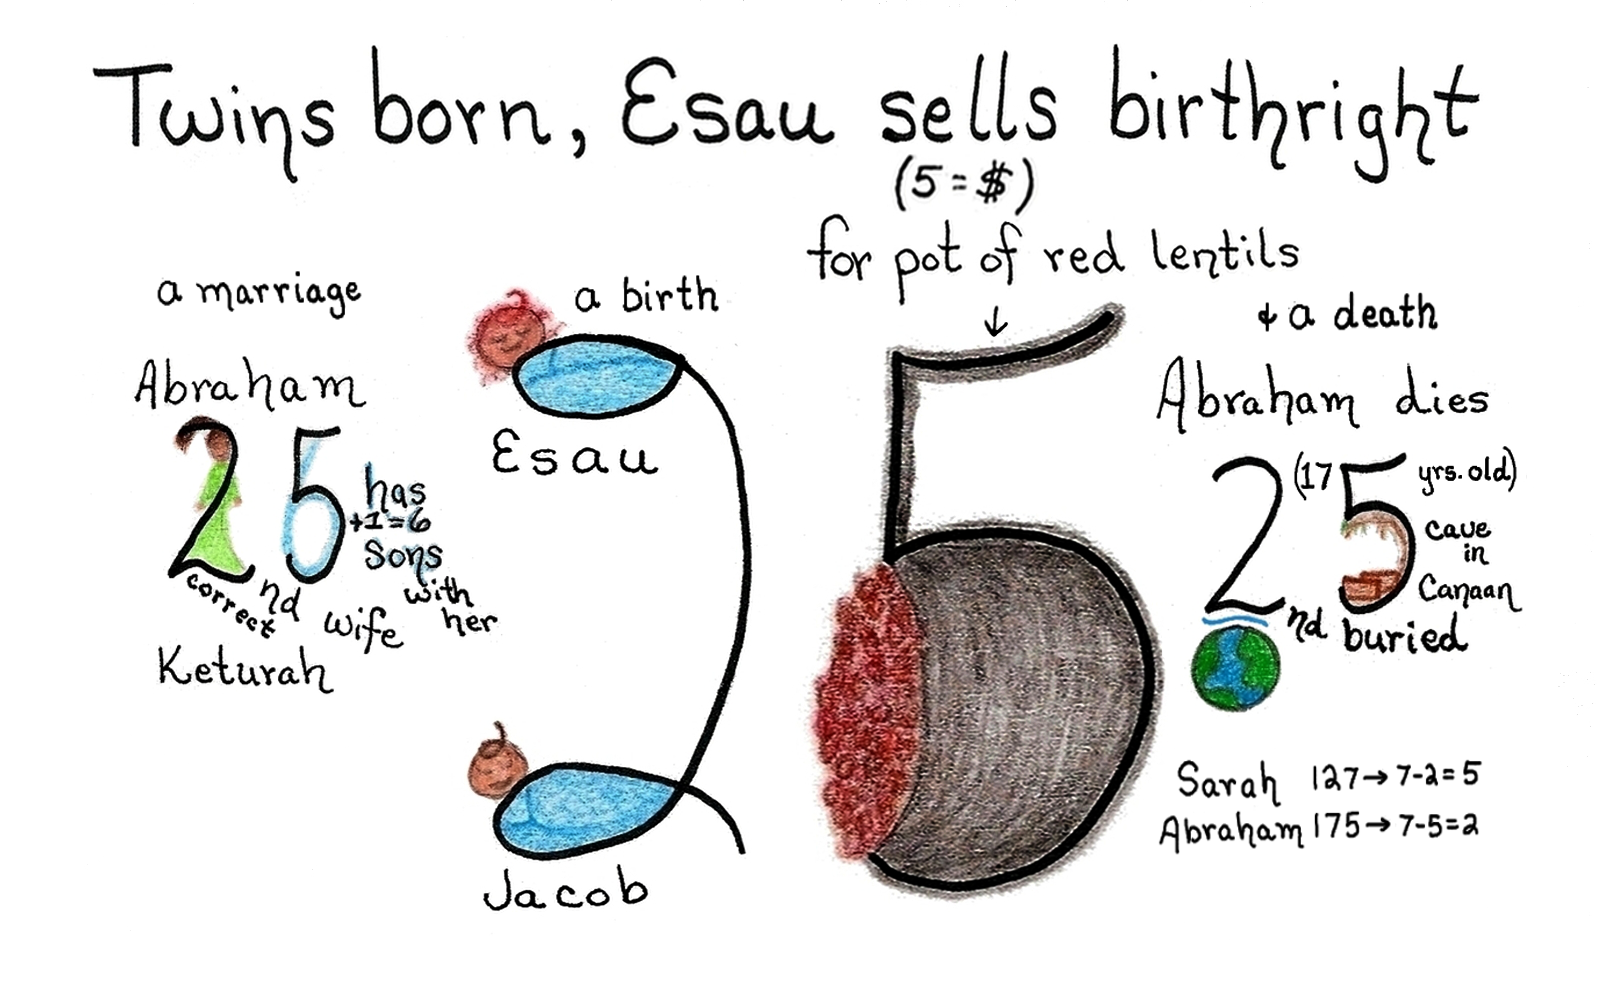 Twins born, Esau sells birthright
(5=$)
for pot of red lentils
↓
a marriage
Abraham
25 has
+1=6
sons
with
her
correct
nd wife
Keturah
a birth
Esau
Jacob
25
& a death
Abraham dies
2 (175 yrs. old)
cave
in
Canaan
nd buried
Sarah 127→7-2=5
Abraham 175→7-5=2